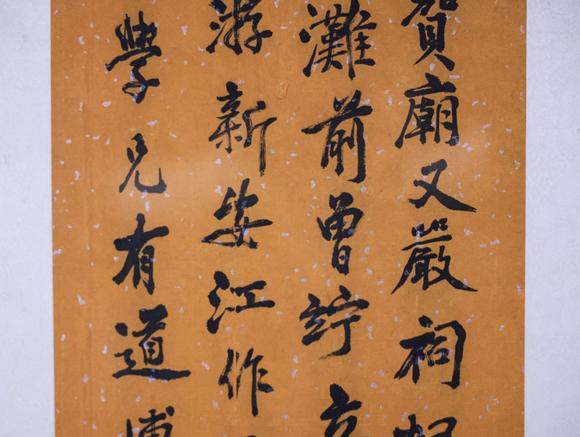 賀廟又嚴祠
灘前曾竚
游新安江作
學兄有道